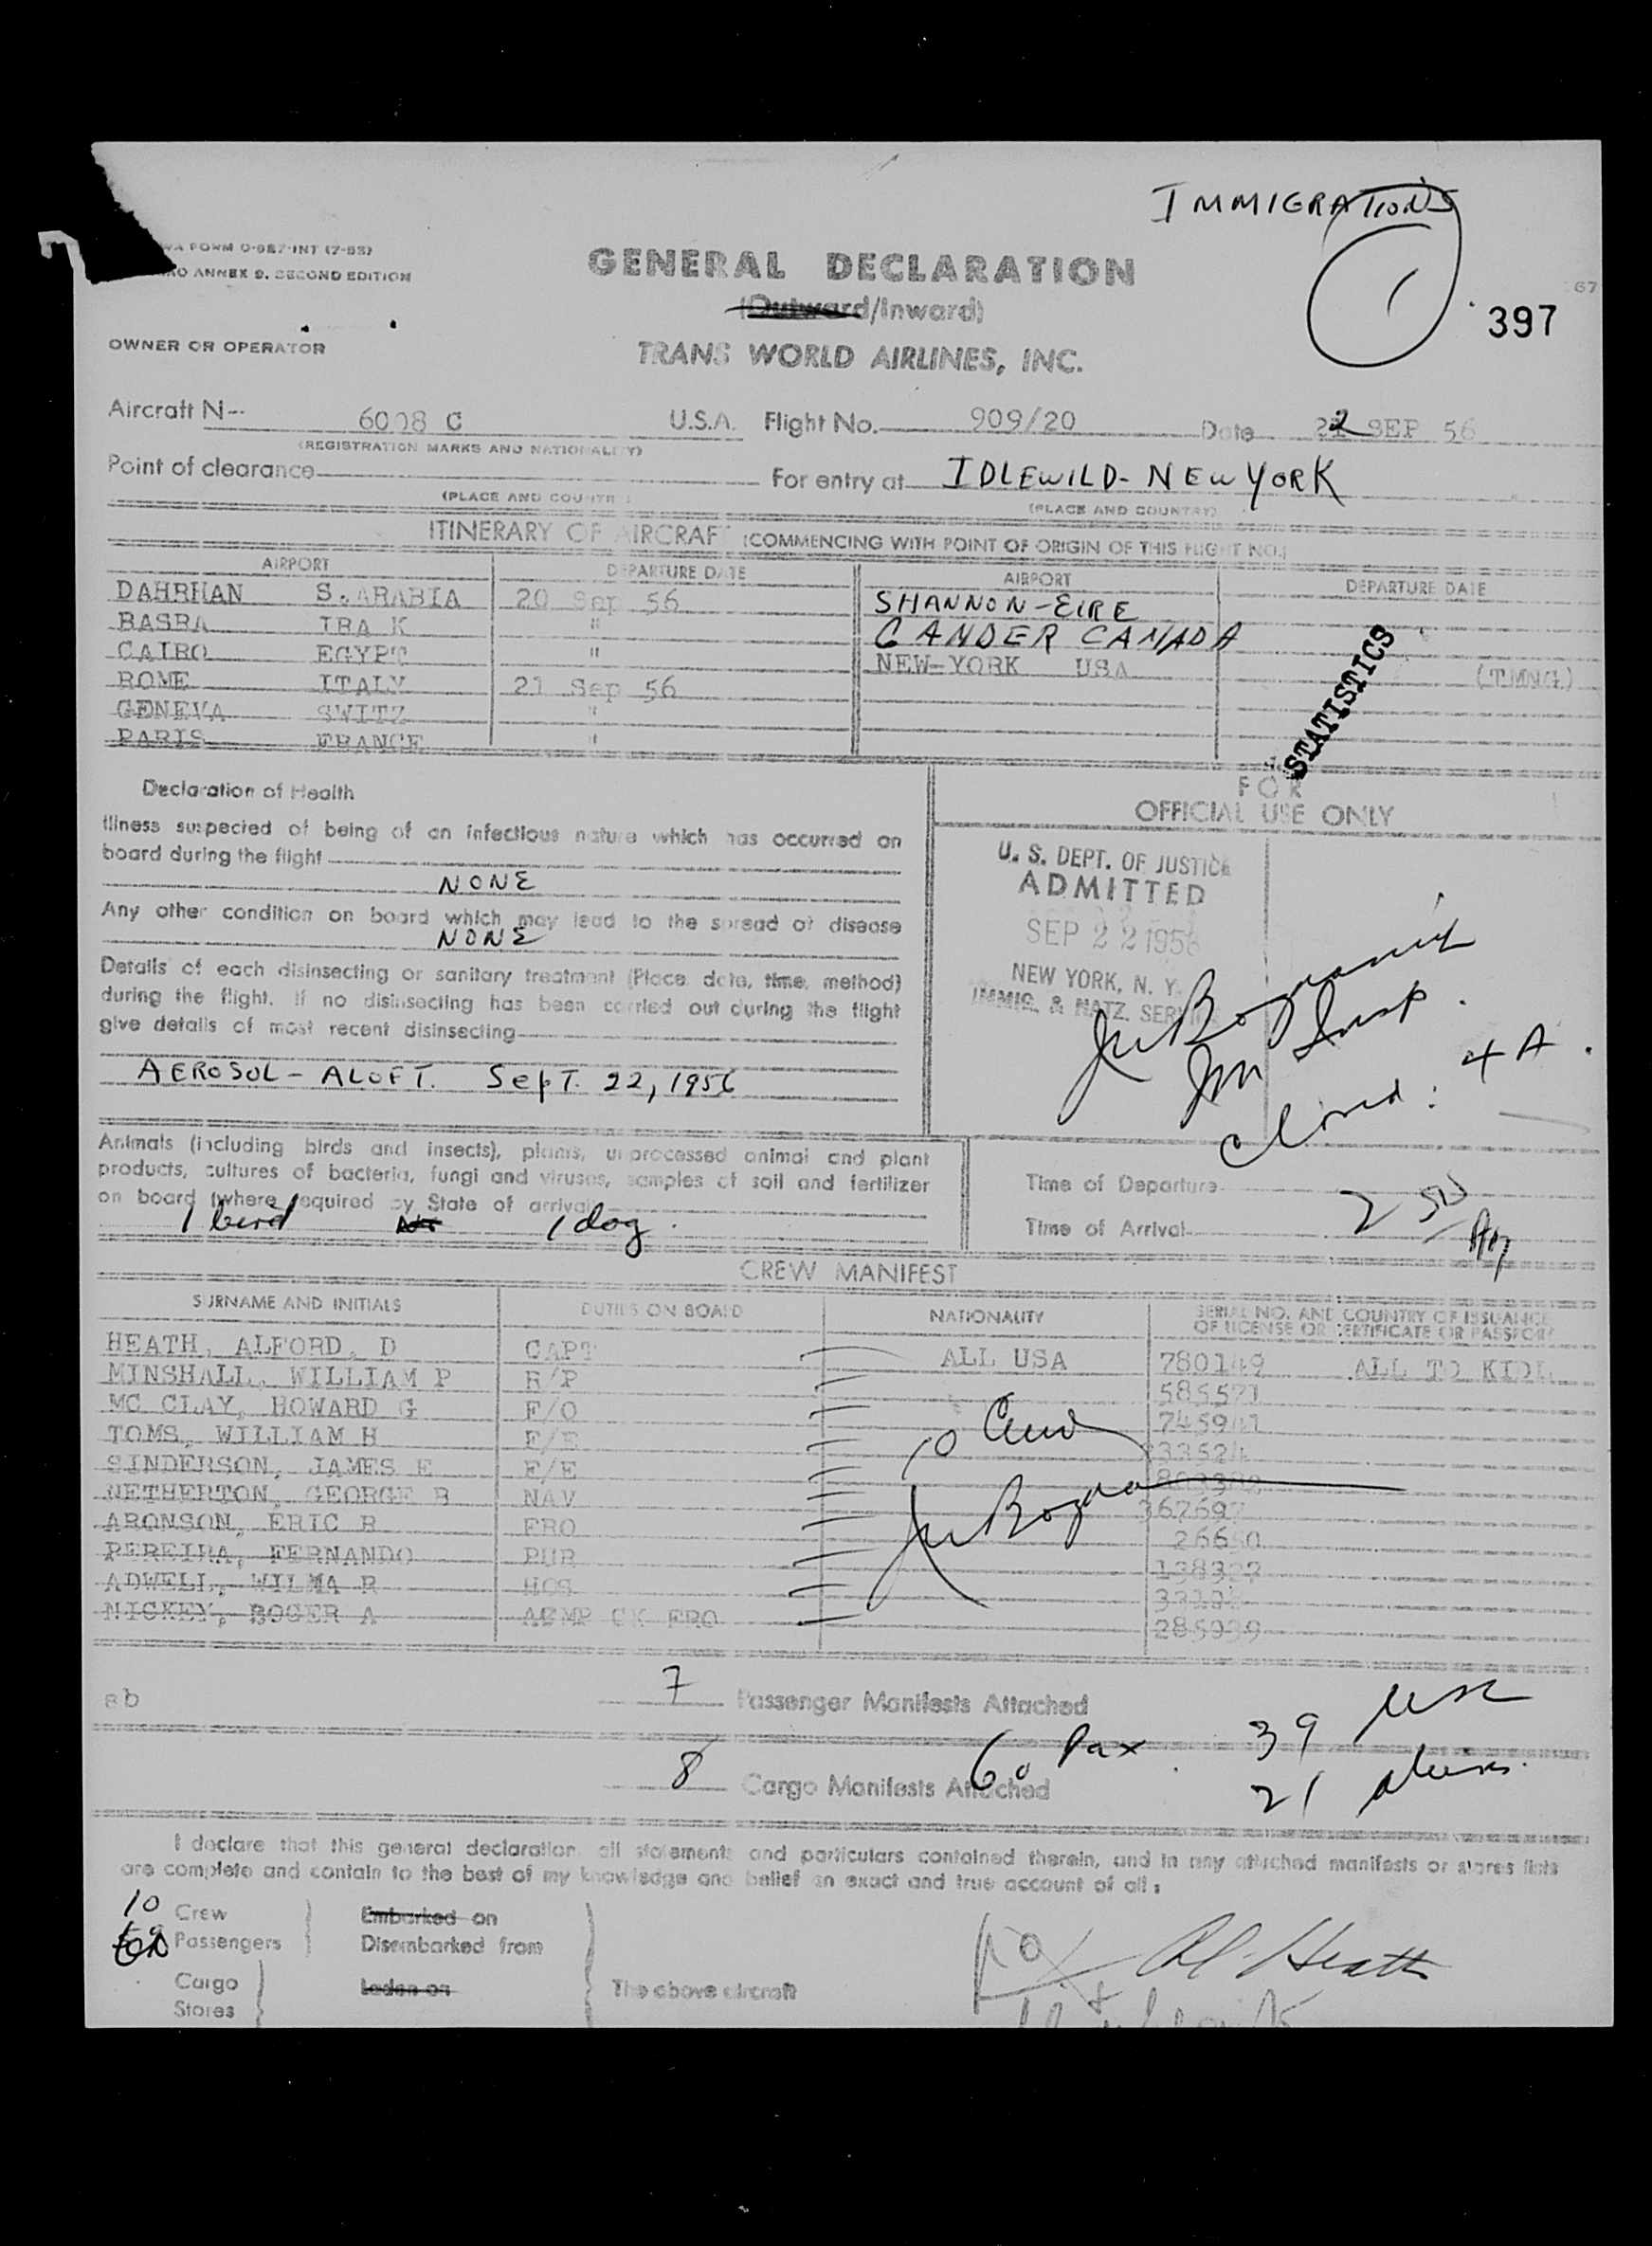 IMMIGRATION
WA FORM O-987-INT (7-53)
ANNEX 9, SECOND EDITION
GENERAL DECLARATION
(Outward/Inward)
67
397
OWNER OR OPERATOR
TRANS WORLD AIRLINES, INC.
Aircraft N-- 6008 C U.S.A. Flight No. 909/20 Date 22 SEP 56
(REGISTRATION MARKS AND NATIONALITY)
Point of clearance For entry at IDLEWILD-NEW YORK
(PLACE AND COUNTRY) (PLACE AND COUNTRY)
ITINERARY OF AIRCRAFT (COMMENCING WITH POINT OF ORIGIN OF THIS FLIGHT NO.)
AIRPORT DEPARTURE DATE AIRPORT DEPARTURE DATE
DAHRHAN S.ARABIA 20 Sep 56 SHANNON-EIRE
BASRA IRA K " GANDER CANADA
CAIRO EGYPT " NEW-YORK USA
ROME ITALY 21 Sep 56
GENEVA SWITZ "
PARIS FRANCE "
STATISTICS
FOR
OFFICIAL USE ONLY
Declaration of Health
Illness suspected of being of an infectious nature which has occurred on
board during the flight
NONE
Any other condition on board which may lead to the spread of disease
NONE
Details of each disinsecting or sanitary treatment (Place, date, time, method)
during the flight. If no disinsecting has been carried out during the flight
give details of most recent disinsecting
AEROSOL-ALOFT. SepT. 22, 1956
U. S. DEPT. OF JUSTICE
ADMITTED
SEP 22 1956
NEW YORK, N. Y.
IMMIG. & NATZ. SERVICE
Im Insp.
Closed: 4 A.
Animals (including birds and insects), plants, unprocessed animal and plant
products, cultures of bacteria, fungi and viruses, samples of soil and fertilizer
on board (where required by State of arrival)
1 bird 1 dog.
Time of Departure
Time of Arrival 2 50 AM
CREW MANIFEST
SURNAME AND INITIALS DUTIES ON BOARD NATIONALITY SERIAL NO. AND COUNTRY OF ISSUANCE
OF LICENSE OR CERTIFICATE OR PASSPORT
HEATH, ALFORD, D CAPT ALL USA 780149 ALL TO KIDL
MINSHALL, WILLIAM P R/P 585571
MC CLAY, HOWARD G F/O 745941
TOMS, WILLIAM H F/E
SINDERSON, JAMES E F/E
NETHERTON, GEORGE B NAV
ARONSON, ERIC R FRO
PEREIRA, FERNANDO PUR
ADWELL, WILMA R HOS
NICKEY, ROGER A FRO 285939
10 Crew
7 Passenger Manifests Attached
60 Pax 39 USC
8 Cargo Manifests Attached
21 aliens.
I declare that this general declaration all statements and particulars contained therein, and in any attached manifests or stores lists
are complete and contain to the best of my knowledge and belief an exact and true account of all:
10 Crew Embarked on
Passengers Disembarked from
Cargo Laden on The above aircraft
Stores
Al Heath